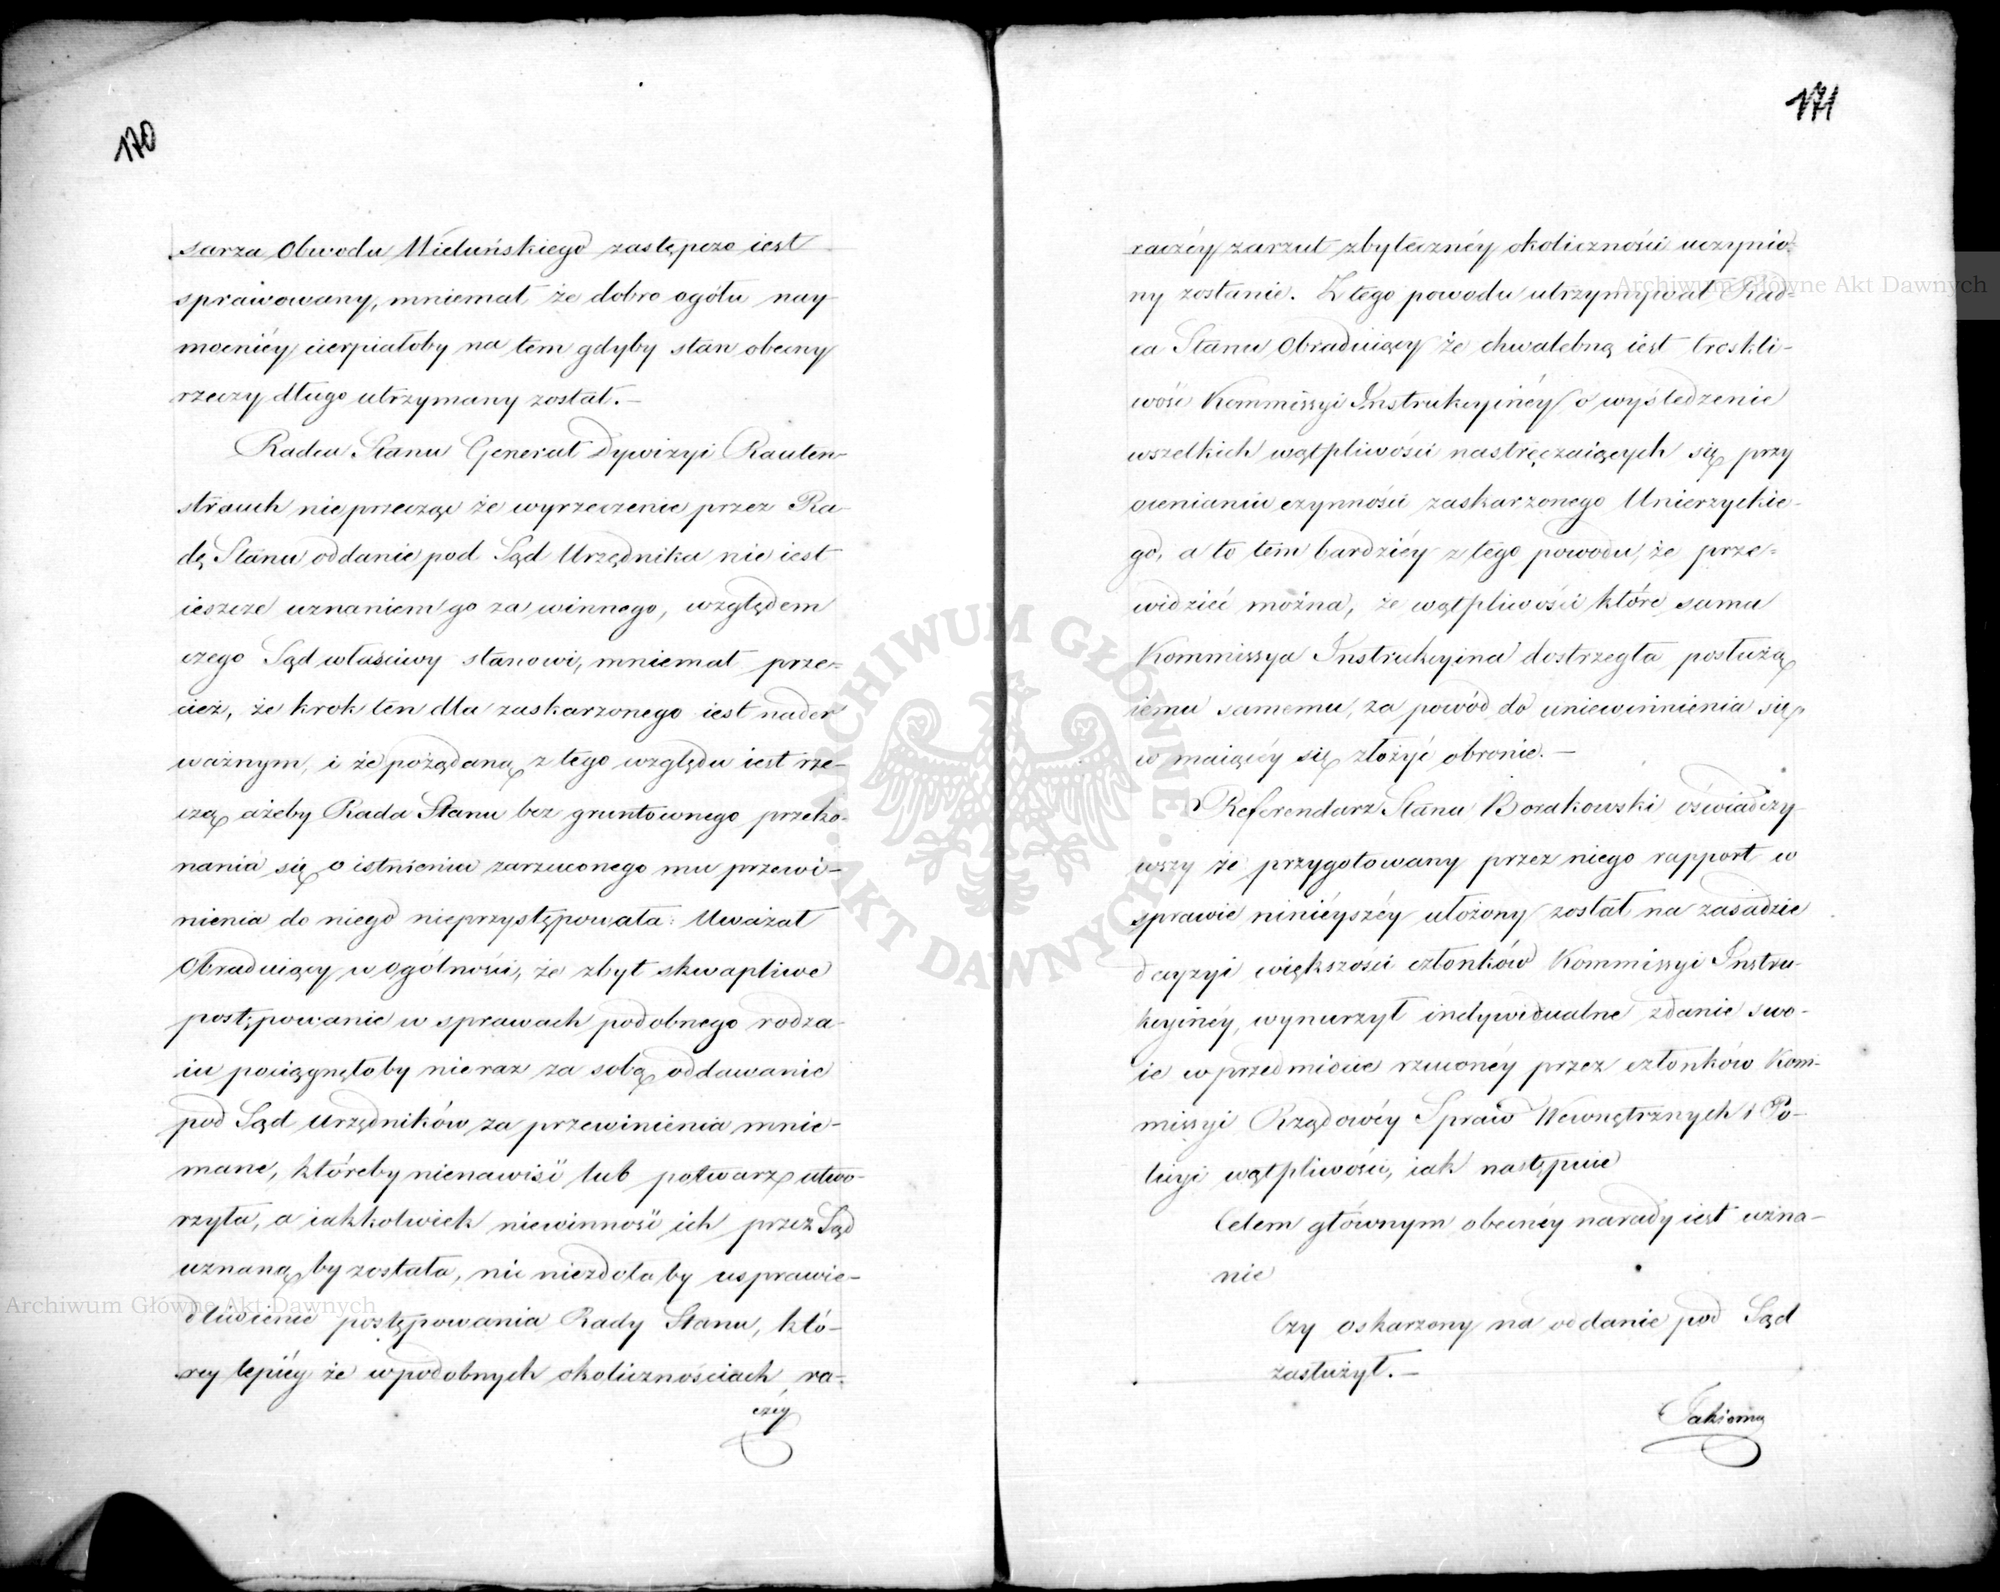 170
sarza Obwodu Wieluńskiego zastępczo iest
sprawowany, mniemał że dobro ogółu nay
mocniéy cierpiałoby na tem gdyby stan obecny
rzeczy długo utrzymany został.—
Radca Stanu Generał Dywizyi Rauten-
strauch nieprzecząc że wyrzeczenie przez Ra-
dę Stanu oddanie pod Sąd Urzędnika nie iest
ieszcze uznaniem go za winnego, względem
czego Sąd właściwy stanowi, mniemał prze-
cież, że krok ten dla zaskarzonego iest nader
ważnym, i że pożądaną z tego względu iest rze-
czą ażeby Rada Stanu bez gruntownego przeko-
nania się o istnieniu zarzuconego mu przewi-
nienia do niego nieprzystępowała: Uważał
Obraduiący w ogólności, że zbyt skwapliwe
postępowanie w sprawach podobnego rodza-
iu pociągnęłoby nieraz za sobą oddawanie
pod Sąd Urzędników za przewinienia mnie-
mane, któreby nienawiść lub potwarz utwo-
rzyła, a iakkolwiek niewinność ich przez Sąd
uznaną by została, nic niezdoła by usprawie-
dliwienie postępowania Rady Stanu, któ-
rey lepiéy że w podobnych okolicznościach ra-
czéy
171
raczéy zarzut zbyteczney okoliczności uczynio-
ny zostanie. Z tego powodu utrzymywał Rad-
ca Stanu Obraduiący że chwalebną iest troskli-
wość Kommissyi Instrukcyinéy o wyśledzenie
wszelkich wątpliwości nastręczaiących się przy
ocenianiu czynności zaskarzonego Unierzyckie-
go, a to tem bardziéy z tego powodu, że prze-
widzieć można, że wątpliwości które sama
Kommissya Instrukcyina dostrzegła posłużą
iemu samemu, za powód do uniewinnienia się
w maiącéy się złożyć obronie.—
Referendarz Stanu Bozakowski oświadczy-
wszy że przygotowany przez niego rapport w
sprawie niniéyszéy ułożony został na zasadzie
decyzyi większości członków Kommissyi Instru-
kcyinéy, wynurzył indywidualne zdanie swo-
ie w przedmiocie rzuconéy przez członków Kom-
missyi Rządowéy Spraw Wewnętrznych i Po-
licyi wątpliwości, iak następuie
Celem głównym obecnéy narady iest uzna-
nie
Czy oskarzony na oddanie pod Sąd
zasłużył.—
Takiemu
ARCHIWUM GŁÓWNE AKT DAWNYCH
Archiwum Główne Akt Dawnych
Archiwum Główne Akt Dawnych